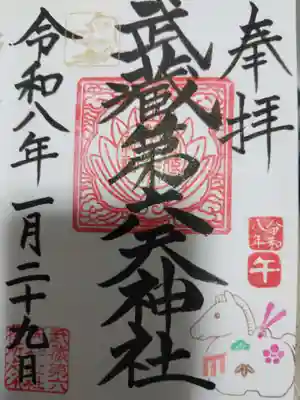 奉拝
令和
八年
午
武蔵第六天神社
令和八年一月二十九日